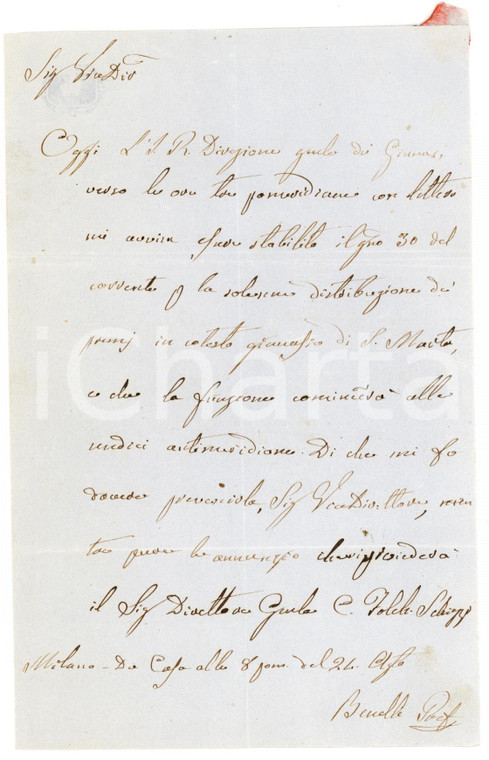 Sig ViceDir
Oggi L'I. R. Direzione gnle dei Ginnasi,
verso le ore tre pomeridiane con lettera
mi avvisa essere stabilito il gno 30 del
corrente p la solenne distribuzione dei
premj in cotesto ginnasio di S. Marta,
e che la funzione comincerà alle
undici antimeridiane. Di che mi fo
dovere prevenirla, Sig ViceDirettore,
pure le annunzio che
il Sig Direttore Gnle C.
Milano - Da Casa alle 8 pom. del 24
Prof
iCharta